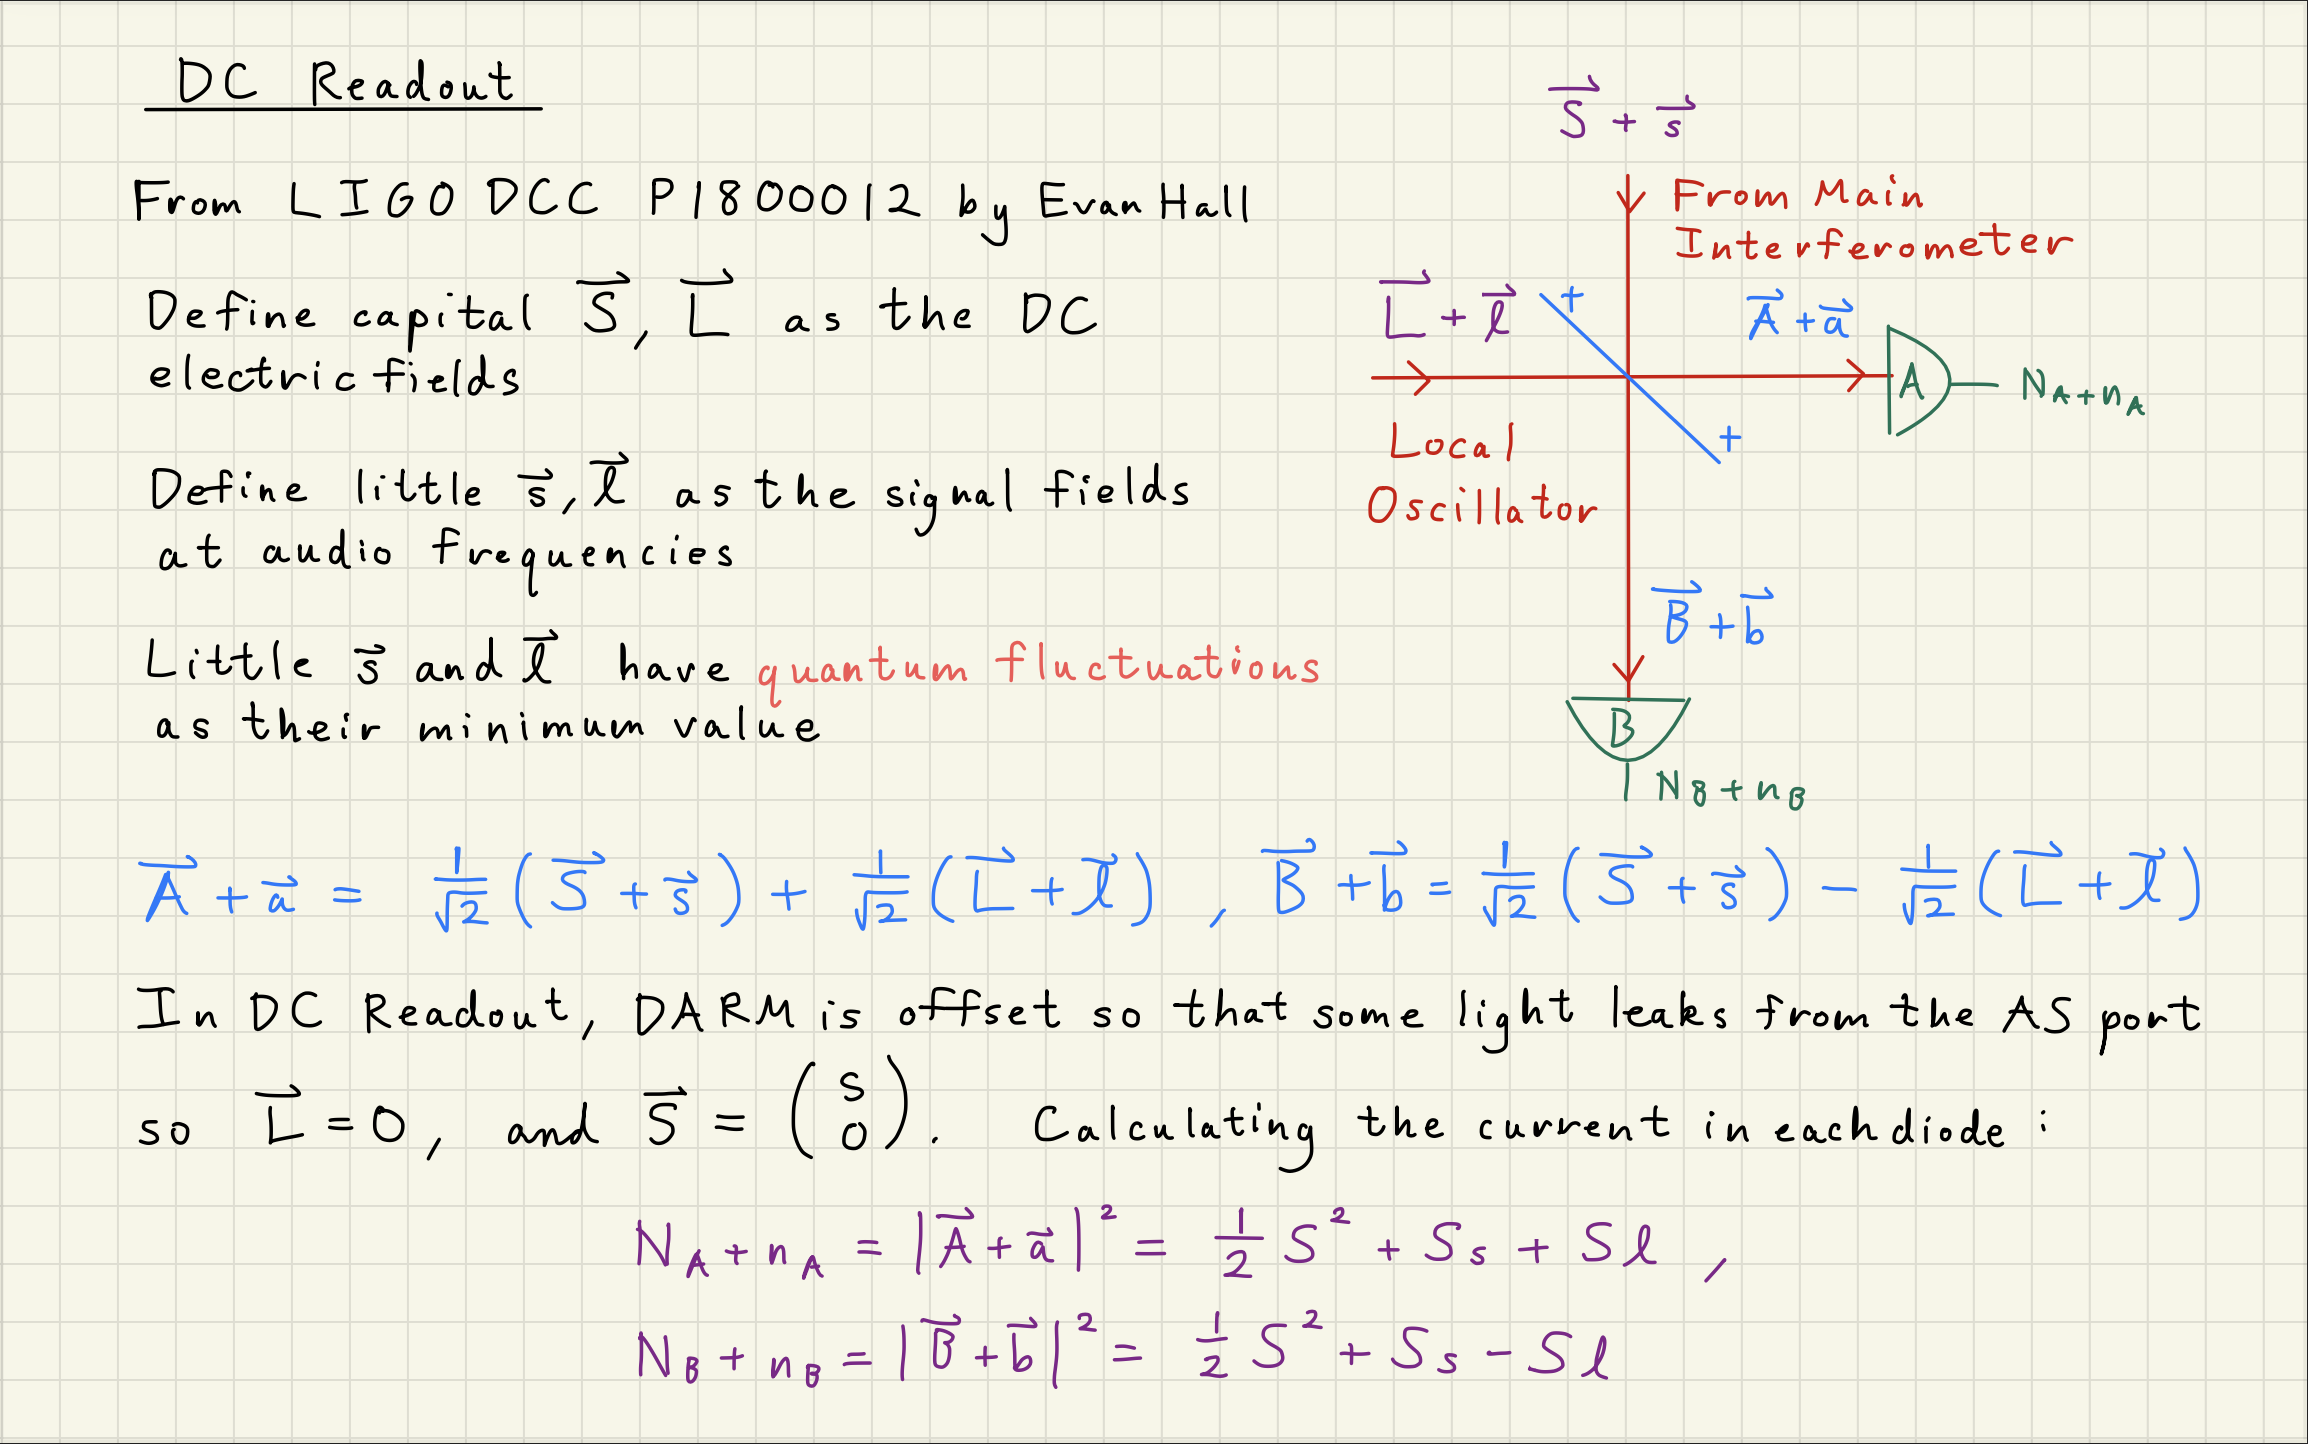 DC Readout
From LIGO DCC P1800012 by Evan Hall
Define capital S⃗, L⃗ as the DC
electric fields
Define little s⃗, l⃗ as the signal fields
at audio frequencies
Little s⃗ and l⃗ have quantum fluctuations
as their minimum value
S⃗ + s⃗
From Main
Interferometer
L⃗ + l⃗
+
A⃗ + a⃗
A
N_A + n_A
+
Local
Oscillator
B⃗ + b⃗
B
N_B + n_B
A⃗ + a⃗ = 1/√2 (S⃗ + s⃗) + 1/√2 (L⃗ + l⃗) , B⃗ + b⃗ = 1/√2 (S⃗ + s⃗) − 1/√2 (L⃗ + l⃗)
In DC Readout, DARM is offset so that some light leaks from the AS port
so L⃗ = 0, and S⃗ = (S 0). Calculating the current in each diode :
N_A + n_A = |A⃗ + a⃗|² = 1/2 S² + Ss + Sl ,
N_B + n_B = |B⃗ + b⃗|² = 1/2 S² + Ss − Sl